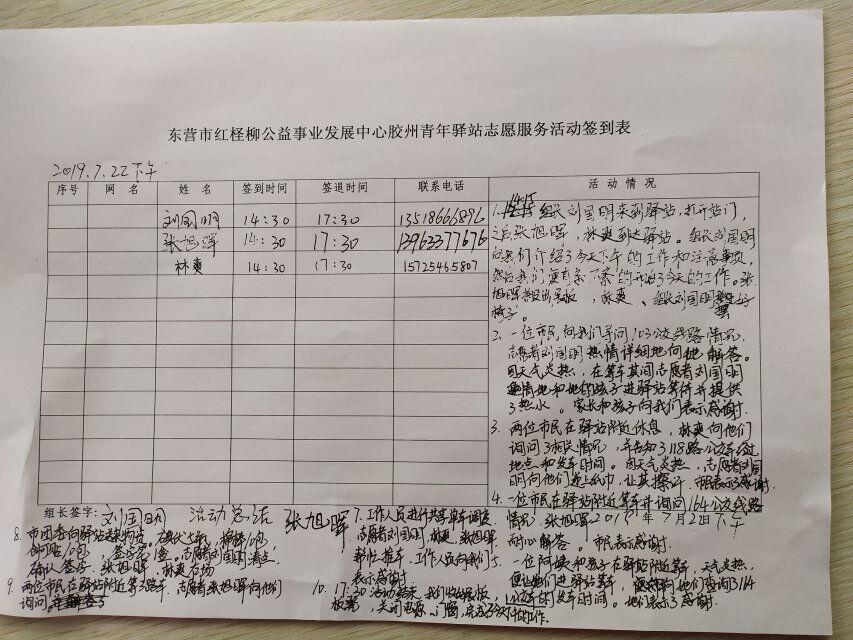 东营市红柽柳公益事业发展中心胶州青年驿站志愿服务活动签到表
2019.7.22下午
序号 网 名 姓 名 签到时间 签退时间 联系电话 活 动 情 况
刘国明 14:30 17:30 13518666896
张旭晖 14:30 17:30 13963377676
林爽 14:30 17:30 15725465807
1. 14:15 组长刘国明来到驿站，打开站门，
之后张旭晖，林爽到达驿站。组长刘国明
向我们介绍了今天下午的工作和注意事项，
然后我们便有条不紊的开始了今天的工作。张
旭晖，林爽、组长刘国明
椅子。
2. 一位市民向我们寻问103公交线路情况，
志愿者刘国明热情详细地向他解答。
因天气炎热，在等车其间志愿者刘国明
邀请她和她的孩子进驿站等待并提供
了热水。家长和孩子向我们表示感谢.
3. 两位市民在驿站附近休息，林爽向他们
询问了相关情况，并告知了118路公交车
地点和发车时间。因天气炎热，志愿者刘国
明向他们递上纸巾，让其擦汗，市民表示了感谢.
4. 一位市民在驿站附近等车并询问164公交线路
情况，张旭晖
耐心解答。市民表示感谢.
5. 一位阿姨和孩子在驿站附近等车，天气炎热，
便让她们进驿站等车，向他们查询了164
公交车的发车时间。她们表示了感谢.
组长签字: 刘国明 活动总结 张旭晖 2019年7月22日下午
7. 工作人员进行共享单车调度，
志愿者刘国明，林爽，张旭晖
帮忙推车，工作人员向我们
表示感谢.
8. 市团委向驿站送物资，
志愿者刘国明清点，
确认签字，张旭晖，林爽在场
9. 两位市民在驿站附近等3路车，志愿者张旭晖向他们
询问。
10. 17:30活动结束，我们收拾展板，
板凳，关闭电源、门窗，完成了今天下午的工作.